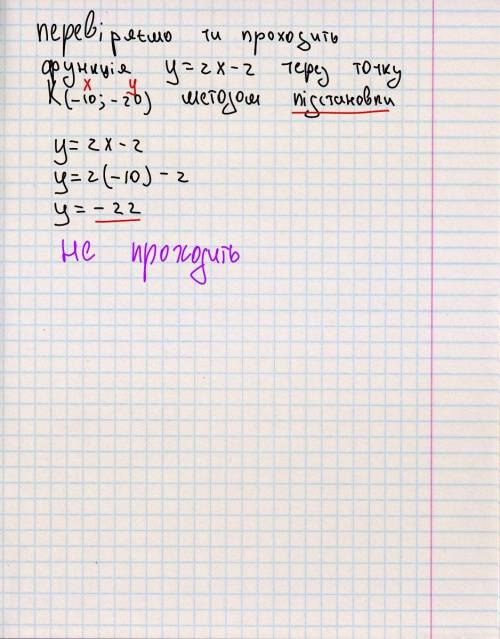 перевіряємо чи проходить
функція y = 2x - 2 через точку
x y
K(-10; -20) методом підстановки
y = 2x - 2
y = 2(-10) - 2
y = -22
не проходить